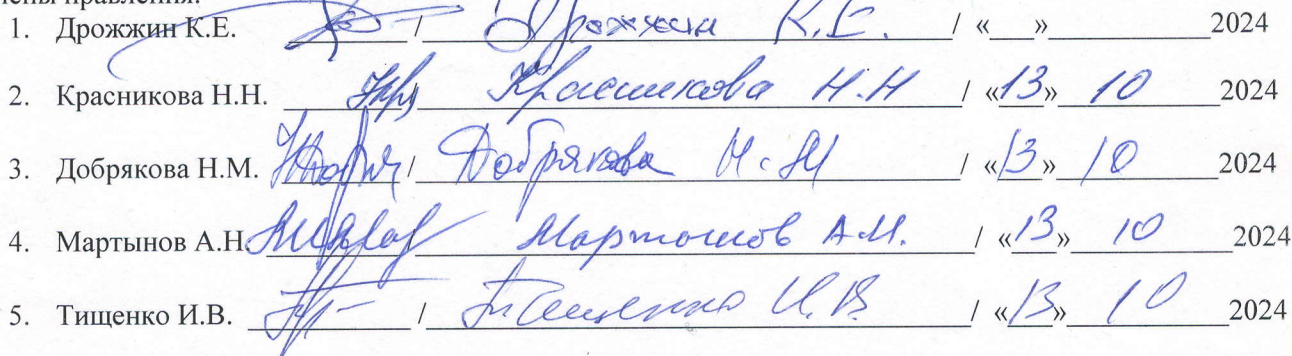 члены правления:
1. Дрожжин К.Е. / Дрожжин К.Е. / «___»____________2024
2. Красникова Н.Н. / Красникова Н.Н / «13» 10 2024
3. Добрякова Н.М. / Добрякова Н.М / «13» 10 2024
4. Мартынов А.Н. Мартынов А.Н. / «13» 10 2024
5. Тищенко И.В. / Тищенко И.В. / «13» 10 2024